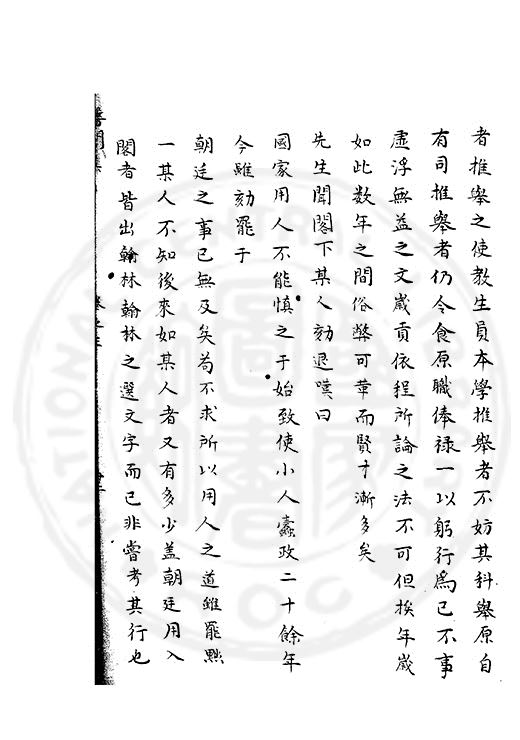 者推舉之使教生員本學推舉者不妨其科舉原自
有司推舉者仍令食原職俸祿一以躬行爲已不事
虛浮無益之文歲貢依程所論之法不可但挨年歲
如此数年之間俗弊可革而賢才漸多矣
先生聞閣下某人劾退嘆曰
國家用人不能慎之于始致使小人蠹政二十餘年
今雖劾罷于
朝廷之事已無及矣為不求所以用人之道雖罷黜
一某人不知後來如某人者又有多少盖朝廷用入
閣者皆出翰林翰林之選文字而已非嘗考其行也